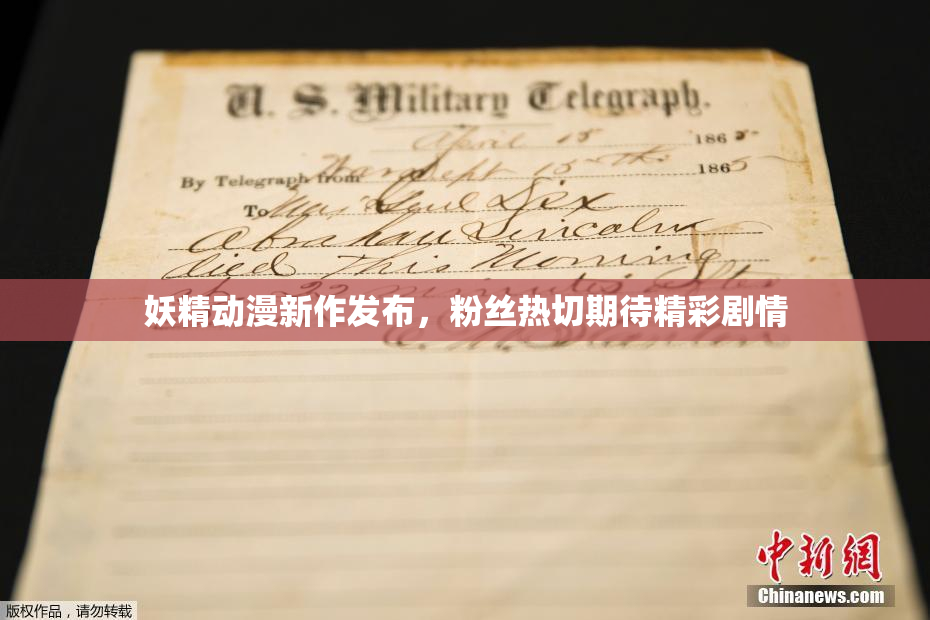 U. S. Military Telegraph.
April 15 1865
By Telegraph from War Dept 15th 1865
To Maj Genl Dix
Abraham Lincoln
died This Morning
at 22 minutes after
妖精动漫新作发布，粉丝热切期待精彩剧情
E. M. Stanton
中新网
Chinanews.com
版权作品，请勿转载